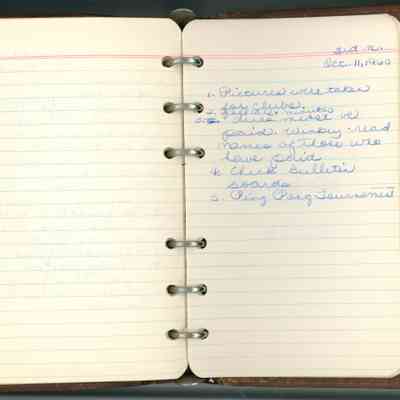 Dec. 11, 1960
1. Pictures were taken
for clubs.
2. minutes
3. Dues must be
paid. read
names of those who
have paid
4. Check bulletin
boards
5. Ping Pong Tournament